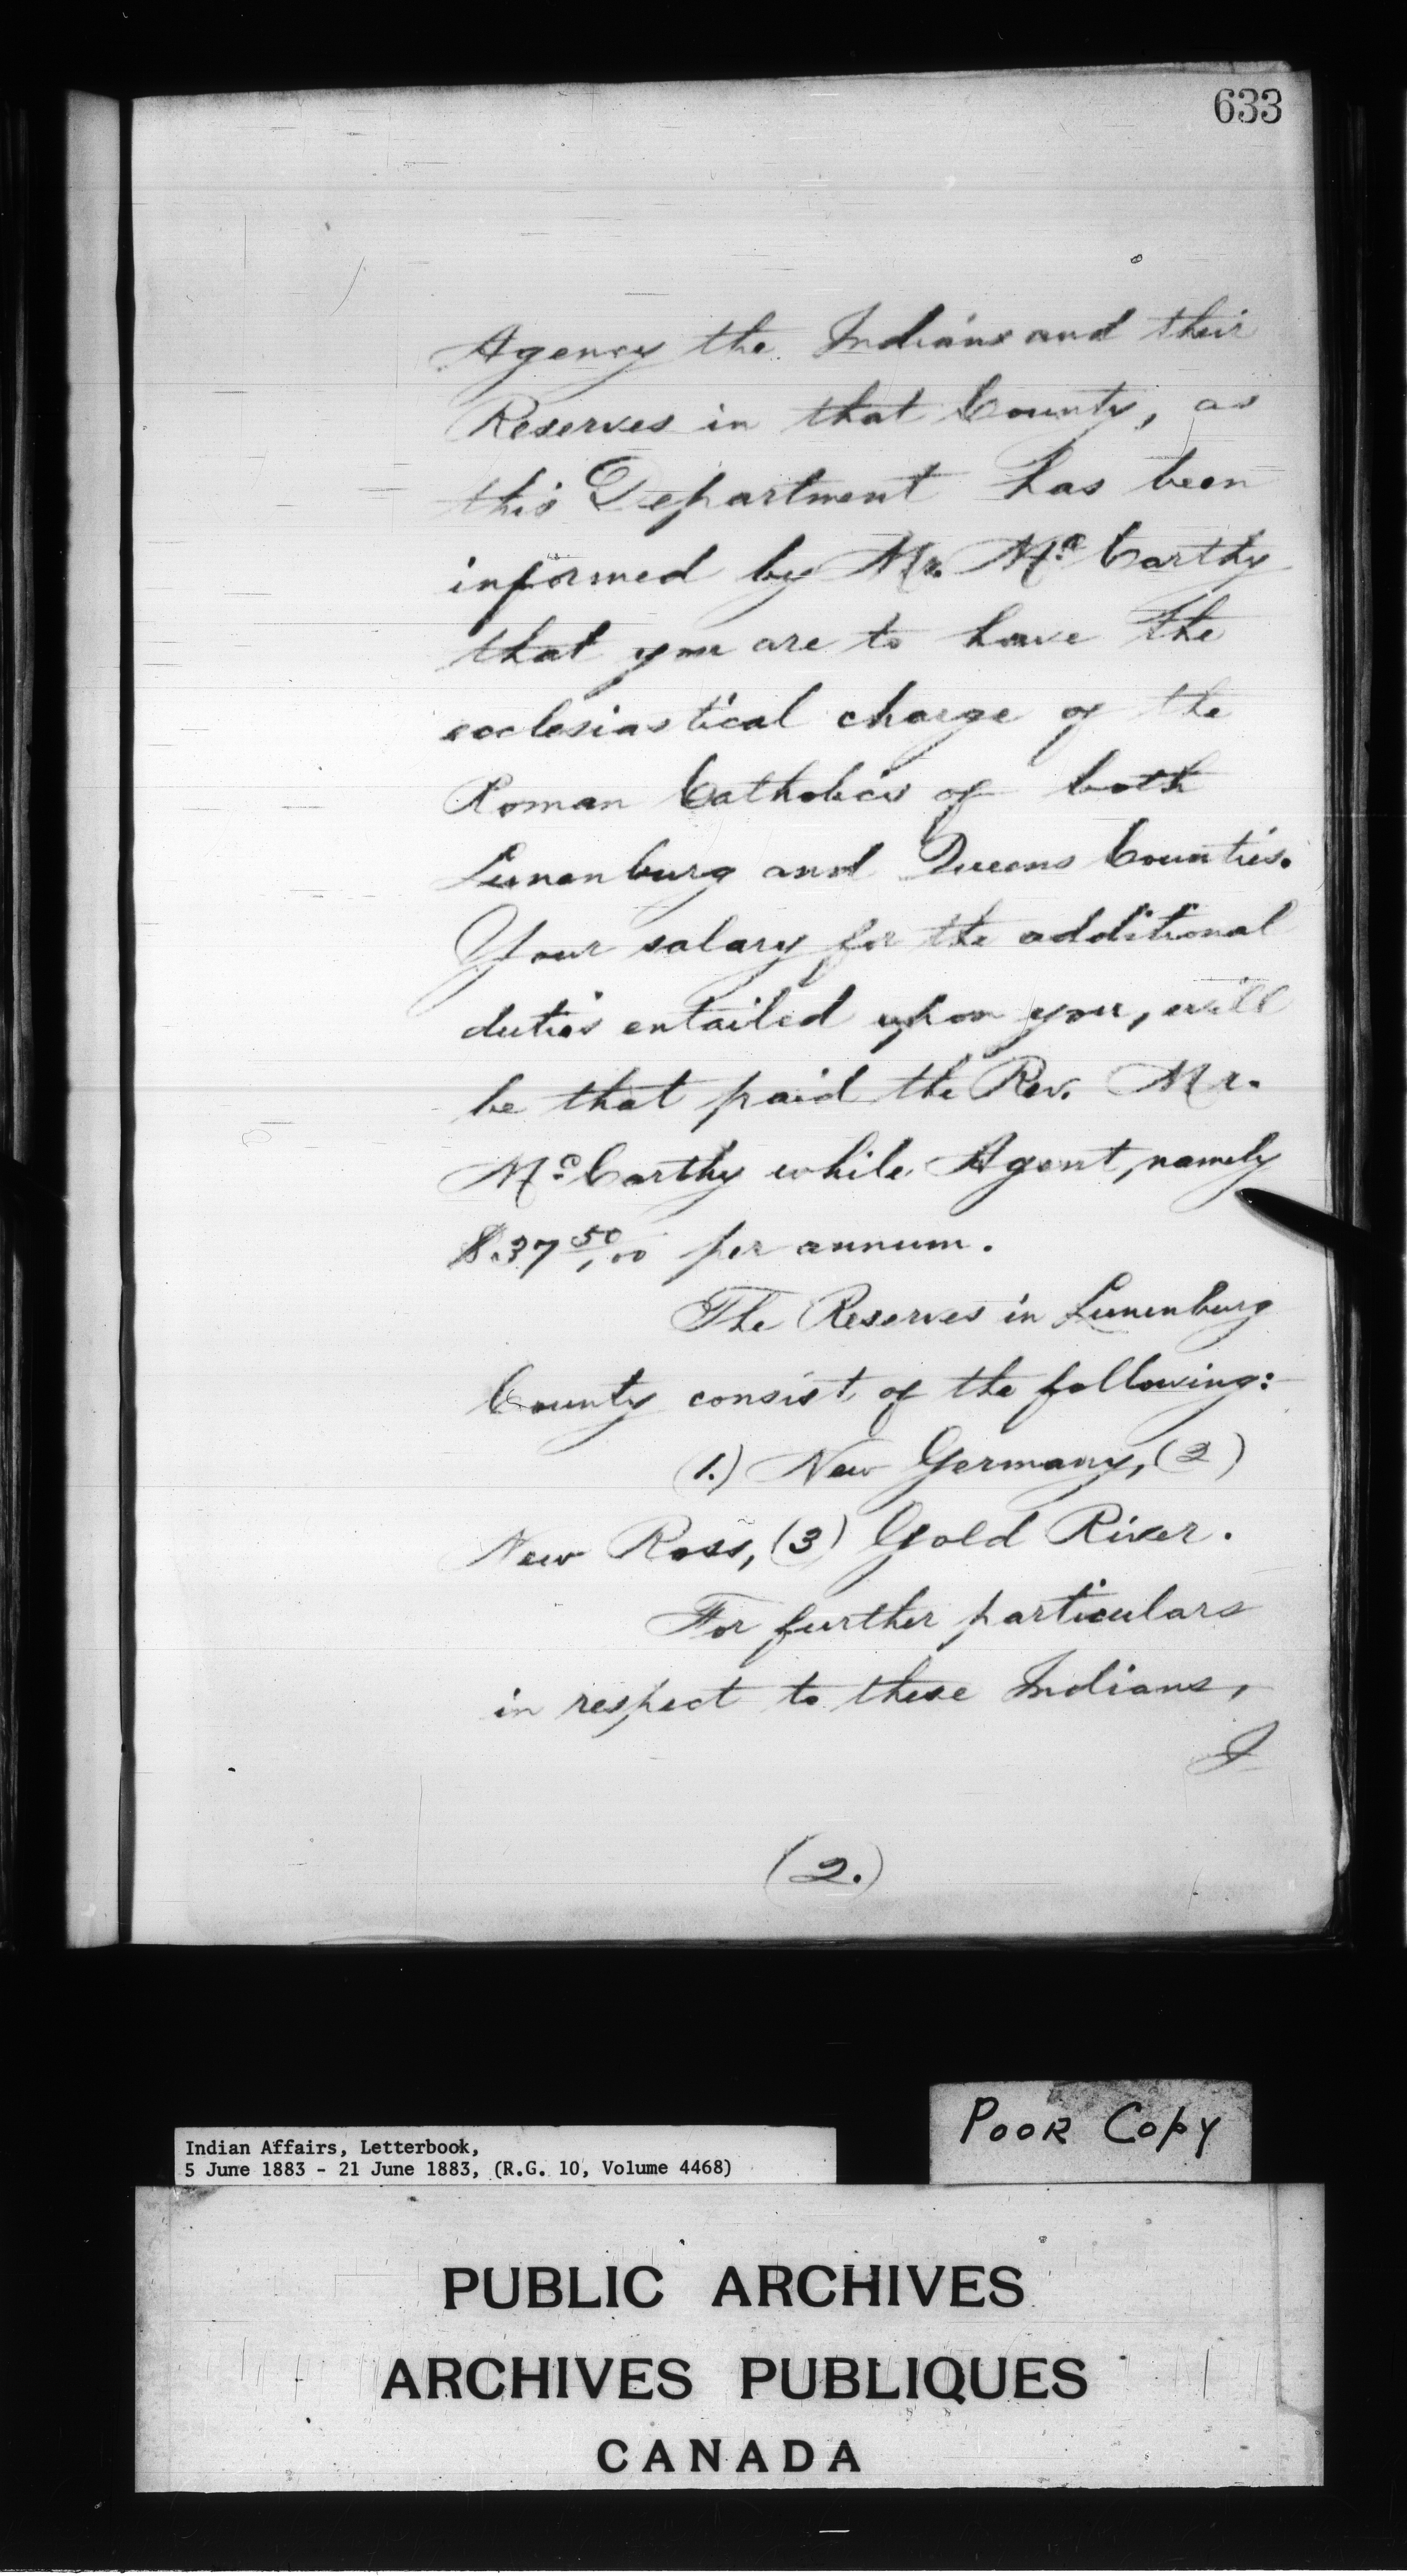 633
Agency the Indians and their
Reserves in that County, as
this Department has been
informed by Mr. Mc Carthy
that you are to have the
ecclesiastical charge of the
Roman Catholics of both
Lunenburg and Queens Counties.
Your salary for the additional
duties entailed upon you, will
be that paid the Rev. Mr.
Mc Carthy while Agent, namely
$37 50/100 per annum.
The Reserves in Lunenburg
County consist of the following:
(1.) New Germany, (2)
New Ross, (3) Gold River.
For further particulars
in respect to these Indians,
I
(2.)
POOR COPY
Indian Affairs, Letterbook,
5 June 1883 - 21 June 1883, (R.G. 10, Volume 4468)
PUBLIC ARCHIVES
ARCHIVES PUBLIQUES
CANADA